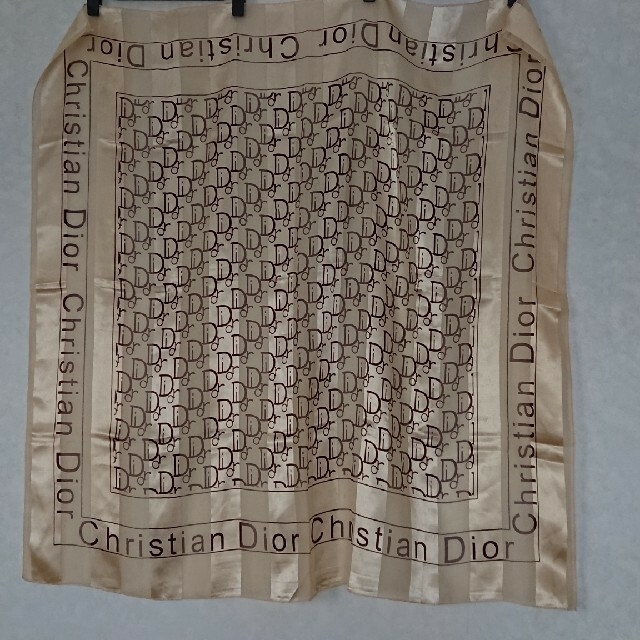 Christian Dior Christian Dior
Christian Dior Christian Dior
Christian Dior Christian Dior
Christian Dior Christian Dior